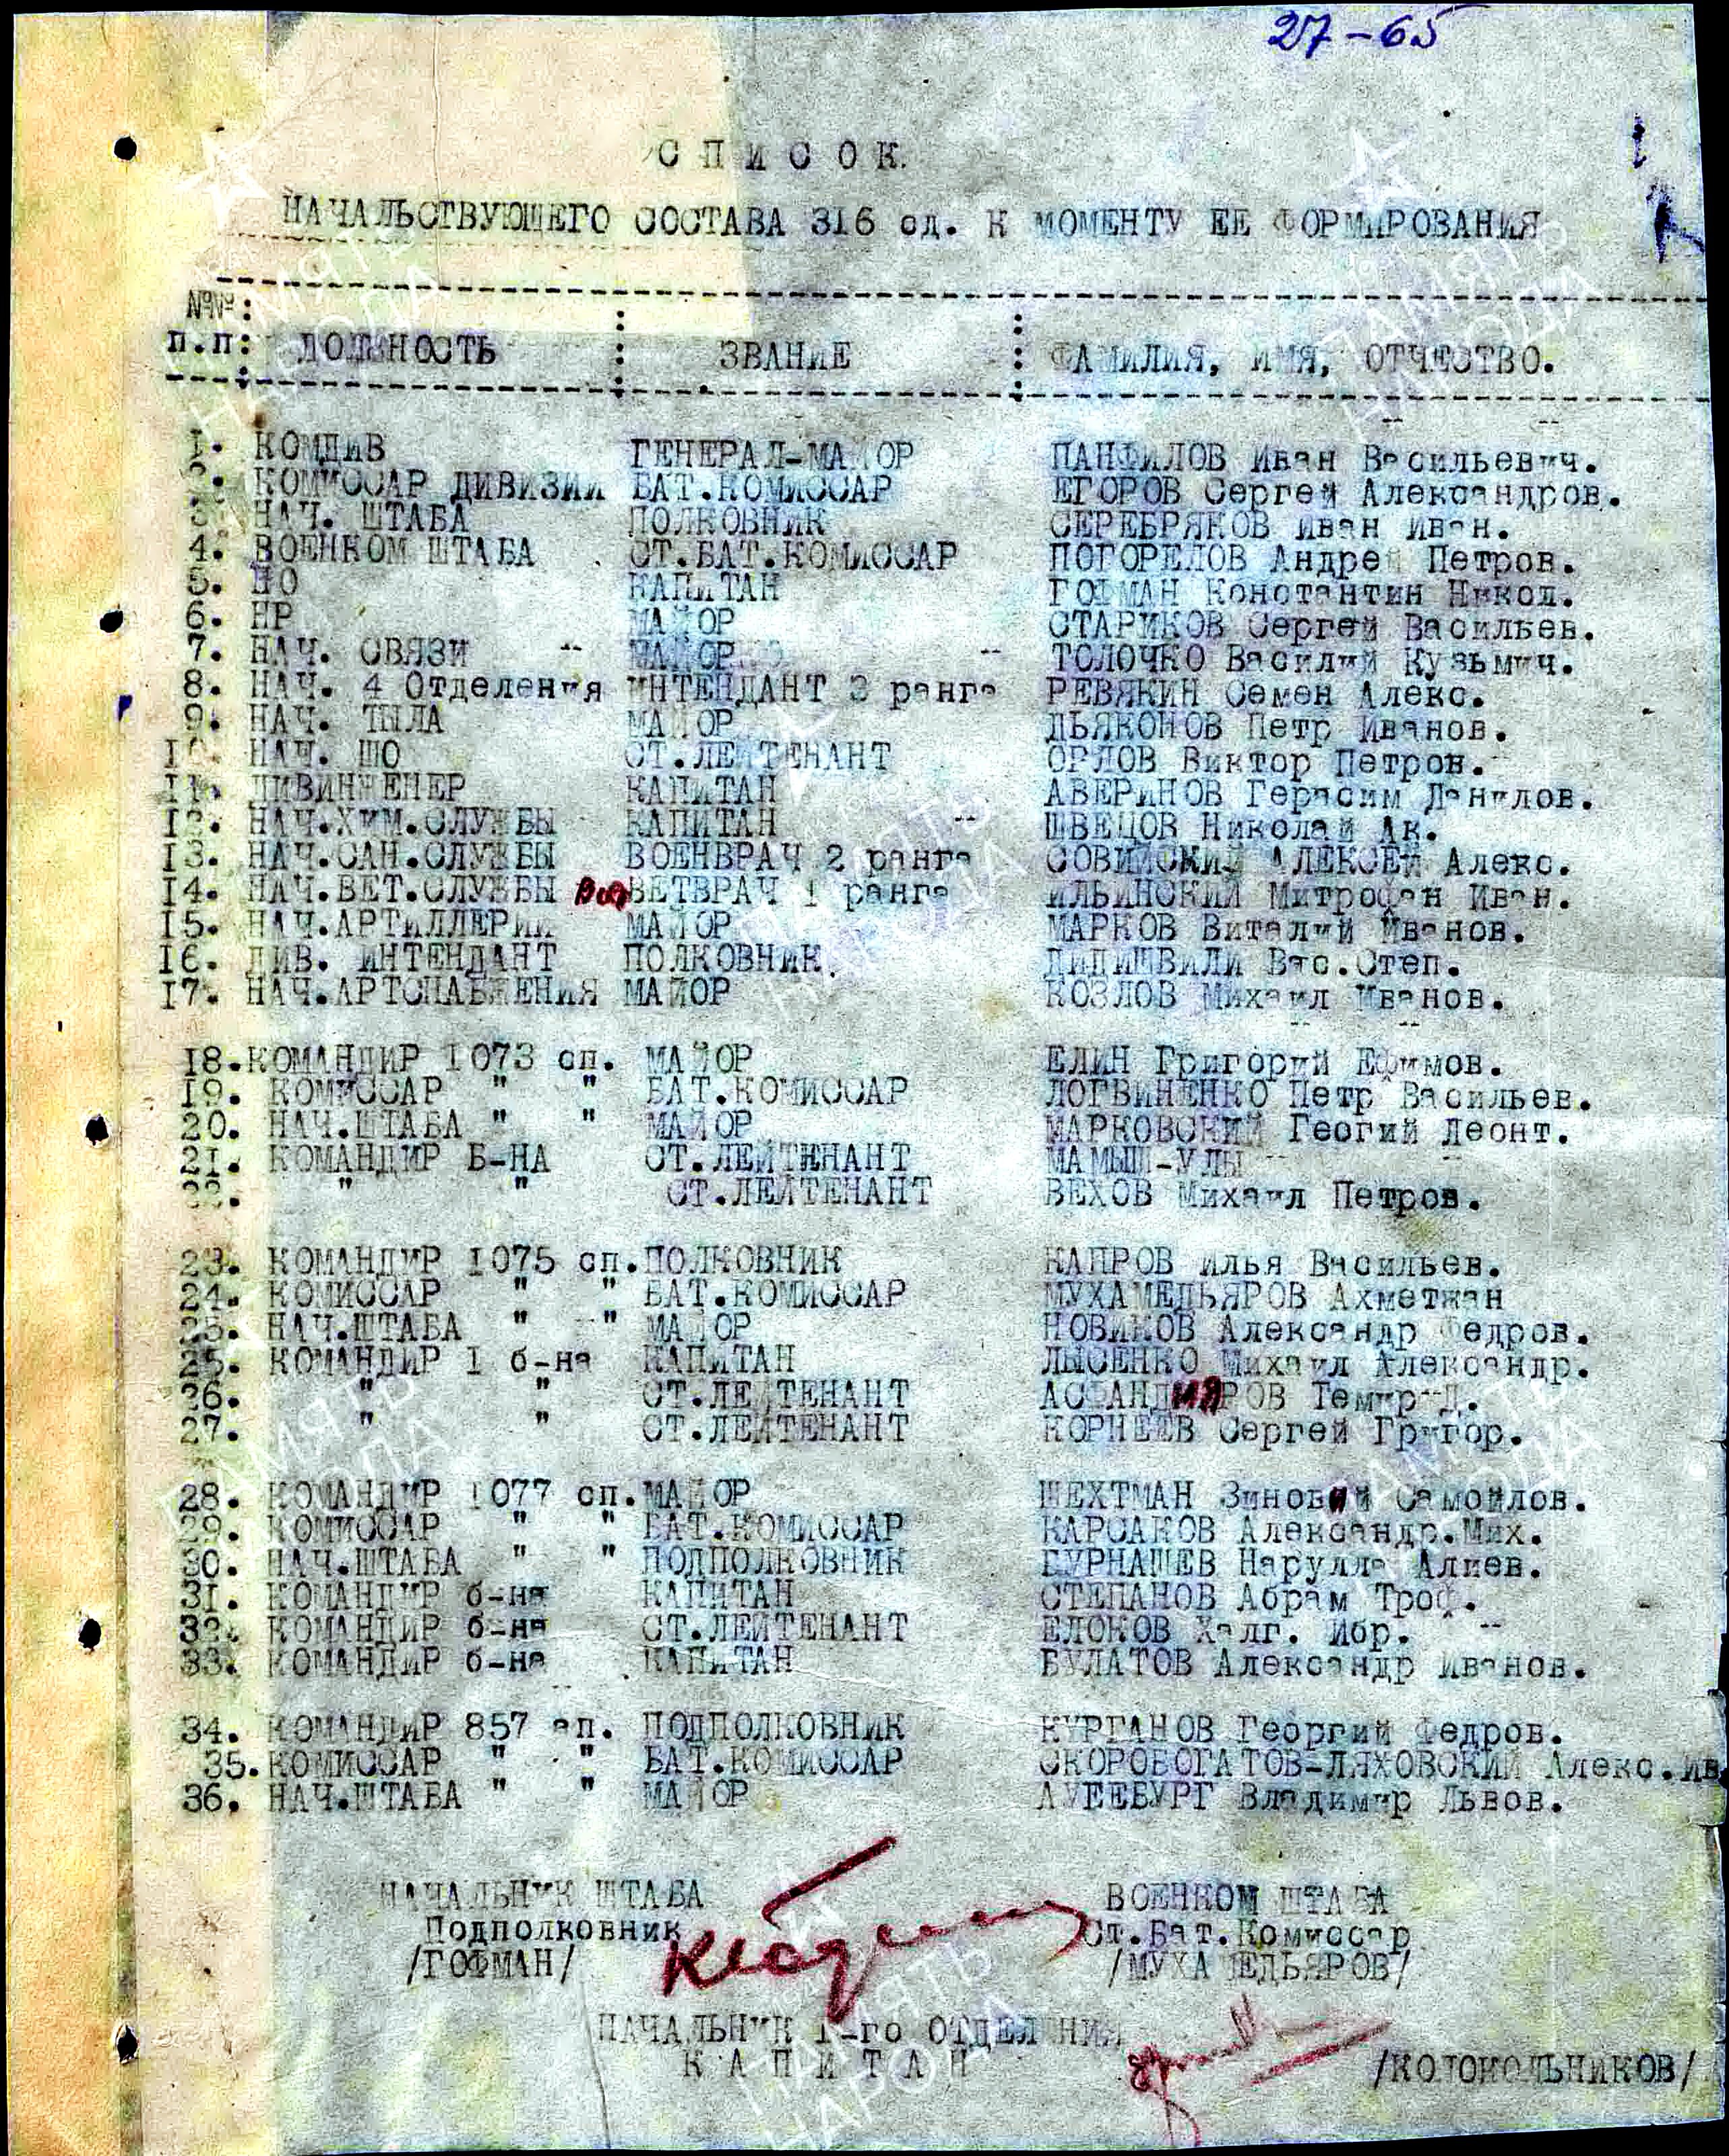 27-65
СПИСОК.
НАЧАЛЬСТВУЮЩЕГО СОСТАВА 316 сд. К МОМЕНТУ ЕЕ ФОРМИРОВАНИЯ
№№
п.п: ДОЛЖНОСТЬ : ЗВАНИЕ : ФАМИЛИЯ, ИМЯ, ОТЧЕСТВО.
1. КОМДИВ ГЕНЕРАЛ-МАЙОР ПАНФИЛОВ Иван Васильевич.
2. КОМИССАР ДИВИЗИИ БАТ.КОМИССАР ЕГОРОВ Сергей Александров.
3. НАЧ. ШТАБА ПОЛКОВНИК СЕРЕБРЯКОВ Иван Иван.
4. ВОЕНКОМ ШТАБА СТ.БАТ.КОМИССАР ПОГОРЕЛОВ Андрей Петров.
5. НО КАПИТАН ГОФМАН Константин Никол.
6. НР МАЙОР СТАРИКОВ Сергей Васильев.
7. НАЧ. СВЯЗИ МАЙОР ТОЛОЧКО Василий Кузьмич.
8. НАЧ. 4 Отделения ИНТЕНДАНТ 3 ранга РЕВЯКИН Семен Алекс.
9. НАЧ. ТЫЛА МАЙОР ДЬЯКОНОВ Петр Иванов.
10. НАЧ. ШО СТ.ЛЕЙТЕНАНТ ОРЛОВ Виктор Петров.
11. ДИВИНЖЕНЕР КАПИТАН АВЕРИНОВ Герасим Данилов.
12. НАЧ.ХИМ.СЛУЖБЫ КАПИТАН ШВЕЦОВ Николай Ак.
13. НАЧ.САН.СЛУЖБЫ ВОЕНВРАЧ 2 ранга СОВИЙСКИЙ АЛЕКСЕЙ Алекс.
14. НАЧ.ВЕТ.СЛУЖБЫ ВЕТВРАЧ 1 ранга ИЛЬИНСКИЙ Митрофан Иван.
15. НАЧ.АРТИЛЛЕРИИ МАЙОР МАРКОВ Виталий Иванов.
16. ДИВ. ИНТЕНДАНТ ПОЛКОВНИК. ДИДИШВИЛИ Вас.Степ.
17. НАЧ.АРТСНАБЖЕНИЯ МАЙОР КОЗЛОВ Михаил Иванов.
18.КОМАНДИР 1073 сп. МАЙОР ЕЛИН Григорий Ефимов.
19. КОМИССАР " " БАТ.КОМИССАР ЛОГВИНЕНКО Петр Васильев.
20. НАЧ.ШТАБА " " МАЙОР МАРКОВСКИЙ Геогий Леонт.
21. КОМАНДИР Б-НА СТ.ЛЕЙТЕНАНТ МАМЫШ-УЛЫ
22. " " СТ.ЛЕЙТЕНАНТ ВЕХОВ Михаил Петров.
23. КОМАНДИР 1075 сп. ПОЛКОВНИК КАПРОВ Илья Васильев.
24. КОМИССАР " " БАТ.КОМИССАР МУХАМЕДЬЯРОВ Ахметжан
25. НАЧ.ШТАБА " " МАЙОР НОВИКОВ Александр Федров.
25. КОМАНДИР 1 б-на КАПИТАН ЛЫСЕНКО Михаил Александр.
26. " " СТ.ЛЕЙТЕНАНТ АСФАНДИЯРОВ Темир-Д.
27. " " СТ.ЛЕЙТЕНАНТ КОРНЕЕВ Сергей Григор.
28. КОМАНДИР 1077 сп. МАЙОР ШЕХТМАН Зиновий Самойлов.
29. КОМИССАР " " БАТ.КОМИССАР КАРСАКОВ Александр.Мих.
30. НАЧ.ШТАБА " " ПОДПОЛКОВНИК БУРНАШЕВ Нарулла Алиев.
31. КОМАНДИР б-на КАПИТАН СТЕПАНОВ Абрам Троф.
32. КОМАНДИР б-на СТ.ЛЕЙТЕНАНТ ЕЛОКОВ Халг. Ибр.
33. КОМАНДИР б-на КАПИТАН БУЛАТОВ Александр Иванов.
34. КОМАНДИР 857 ап. ПОДПОЛКОВНИК КУРГАНОВ Георгий Федров.
35. КОМИССАР " " БАТ.КОМИССАР СКОРОБОГАТОВ-ЛЯХОВСКИЙ Алекс.Ив
36. НАЧ.ШТАБА " " МАЙОР Владимир Львов.
НАЧАЛЬНИК ШТАБА ВОЕНКОМ ШТАБА
Подполковник Ст.Бат.Комиссар
/ГОФМАН/ /МУХАМЕДЬЯРОВ/
НАЧАЛЬНИК 1-го ОТДЕЛЕНИЯ
КАПИТАН /КОЛОКОЛЬНИКОВ/
ПАМЯТЬ НАРОДА